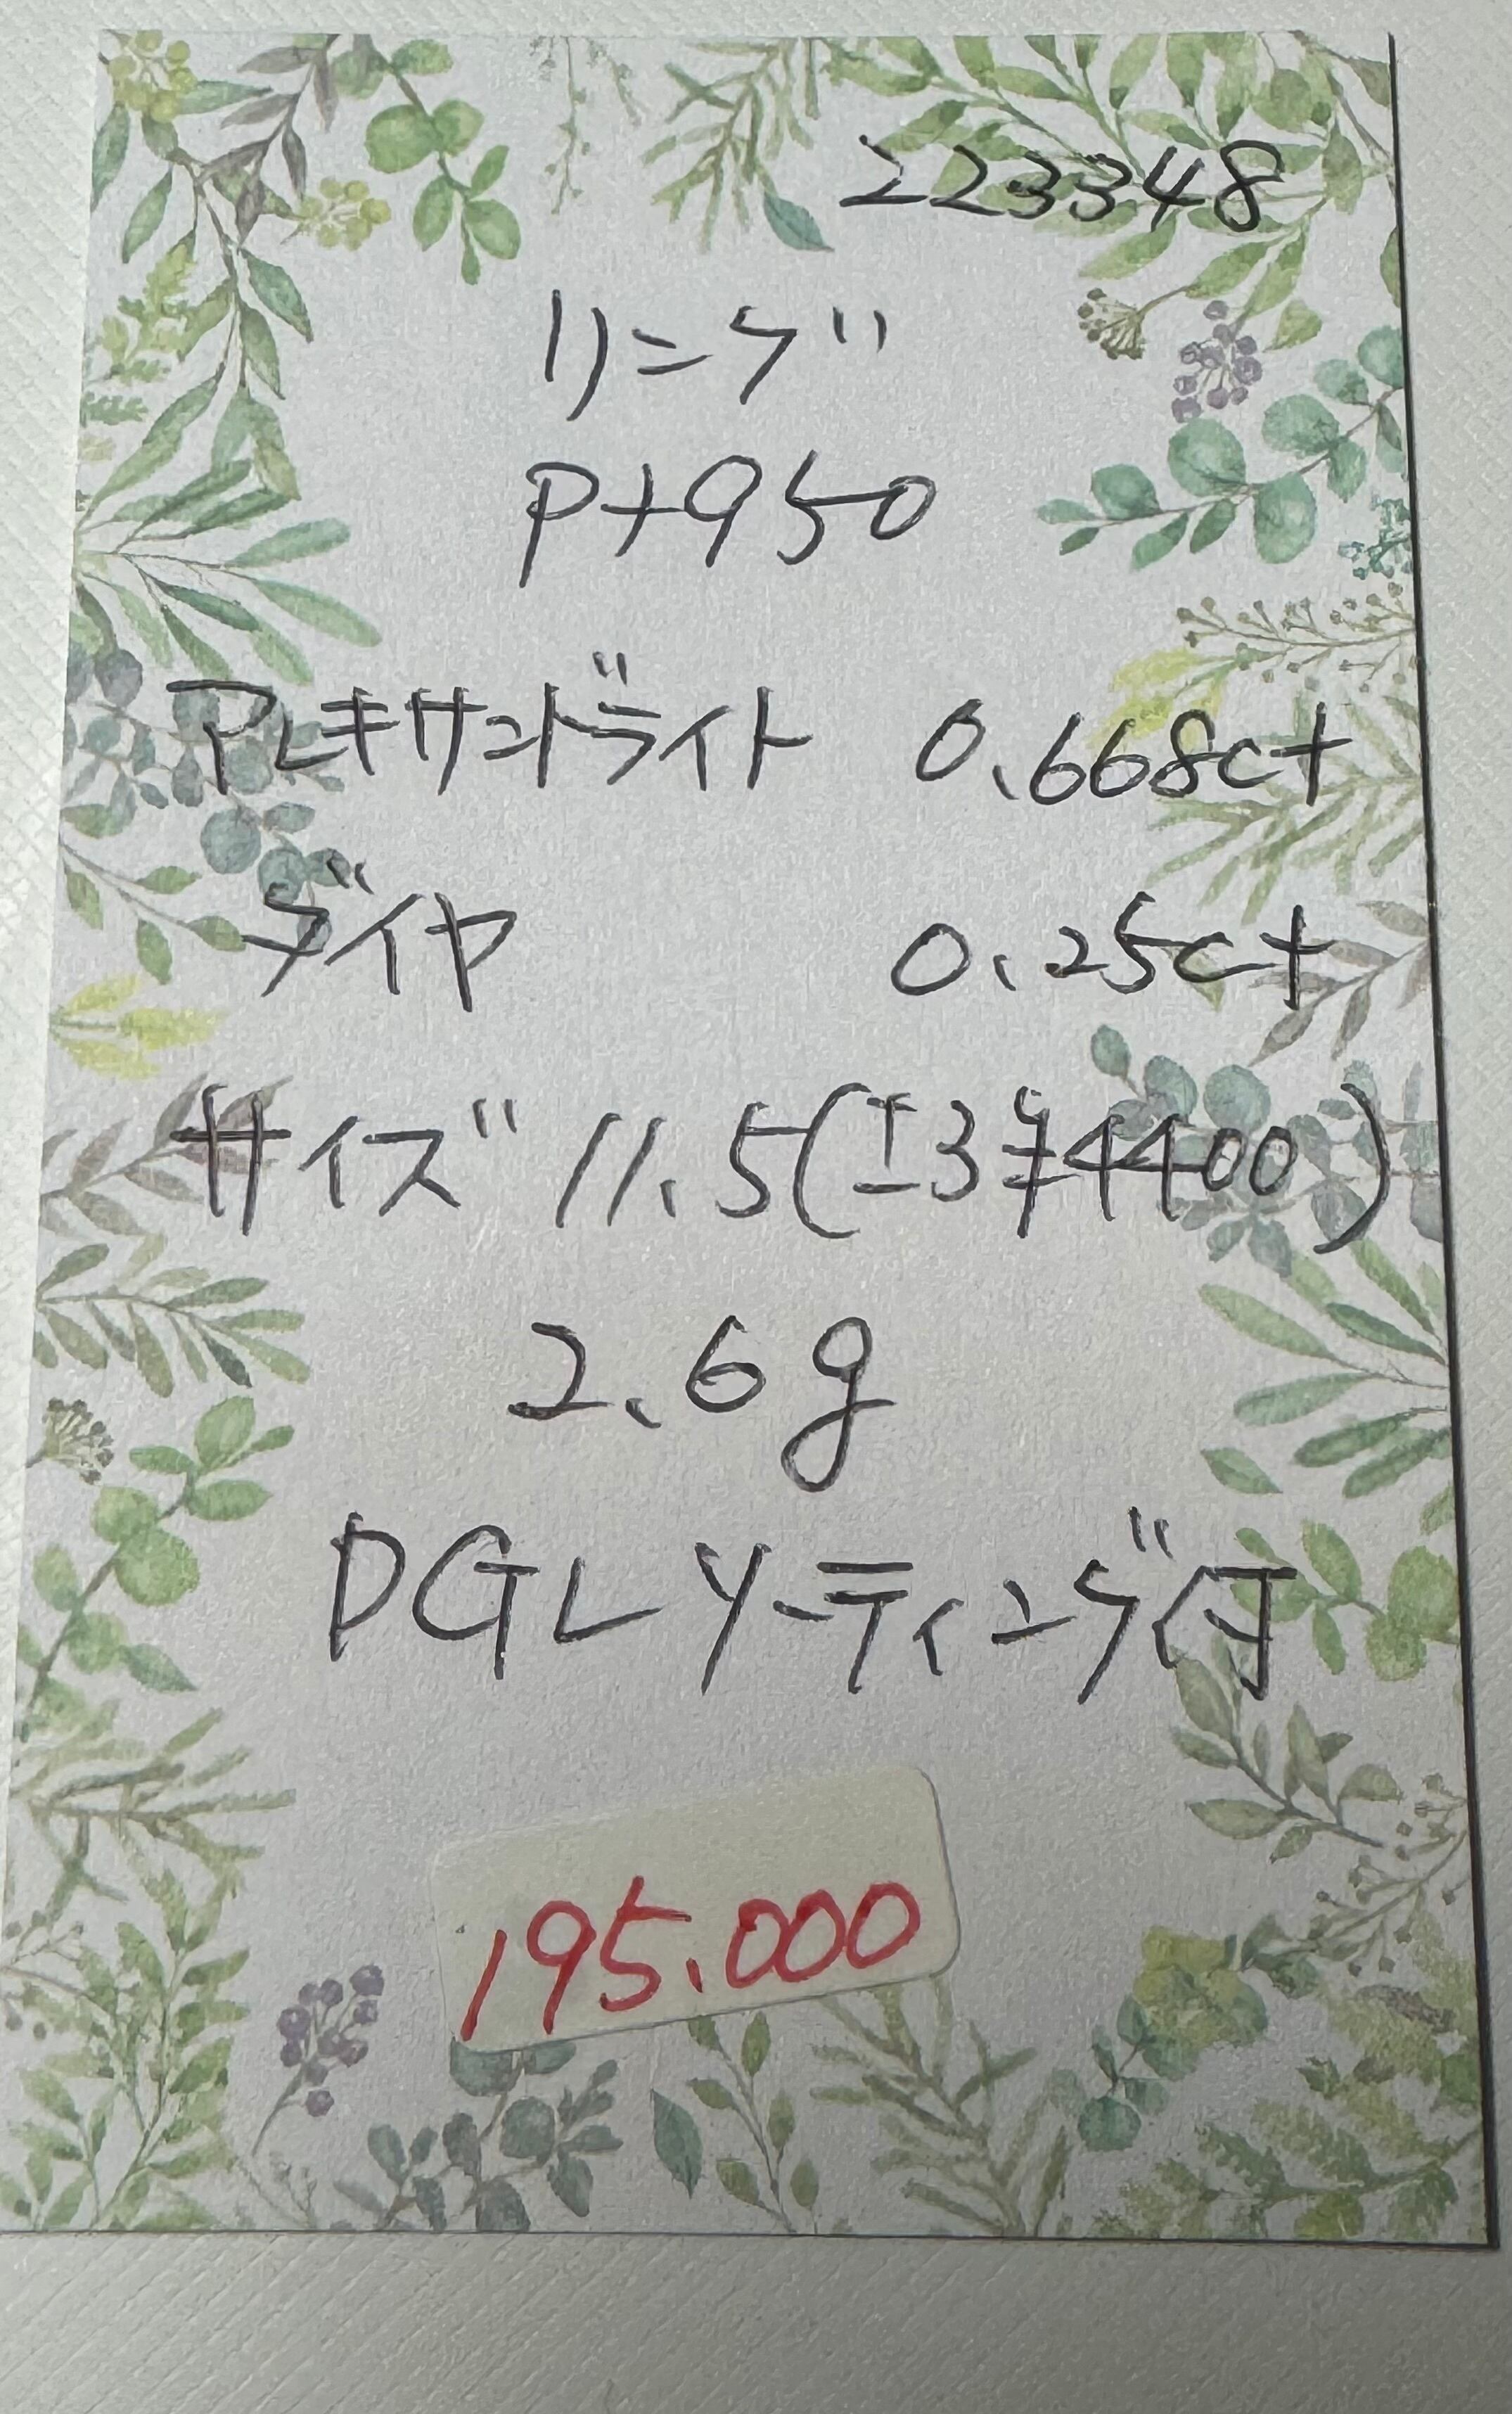 223348
リング
Pt950
アレキサンドライト 0.668ct
ダイヤ 0.25ct
サイズ 11.5(±3¥4400)
2.6g
DGLソーティング付
195.000